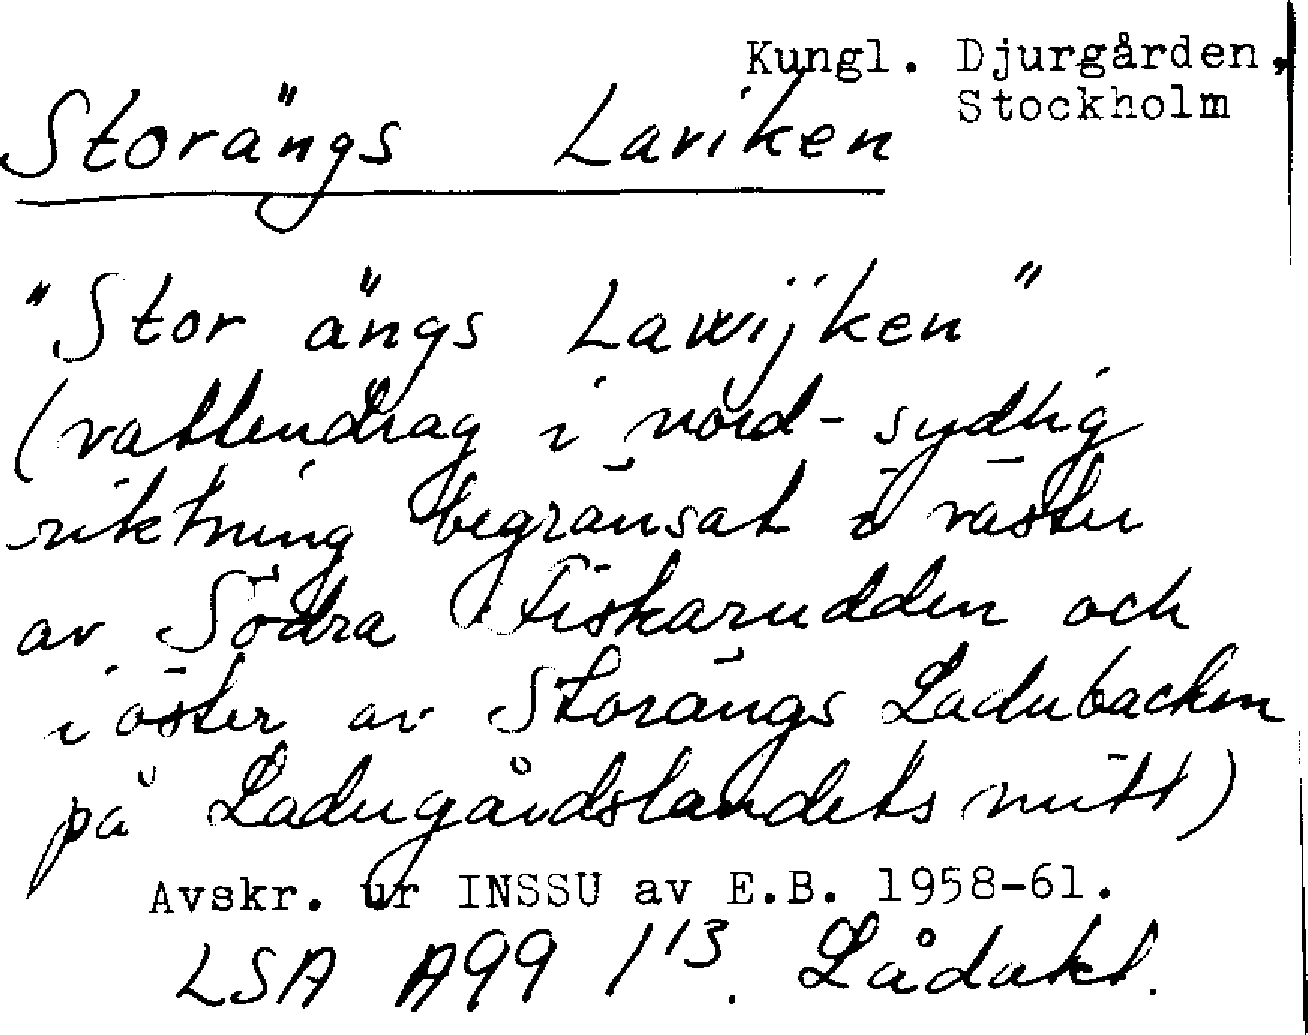 Kungl. Djurgården,
Stockholm
Storängs Laviken
"Stor ängs Lawijken"
(vattendrag i nord-sydlig
riktning begränsat i väster
av Södra Fiskarudden och
i öster av Storängs Ladubacken
på Ladugårdslandets mitt)
Avskr. ur INSSU av E.B. 1958-61.
LSA A99 1'3. Lådakt.